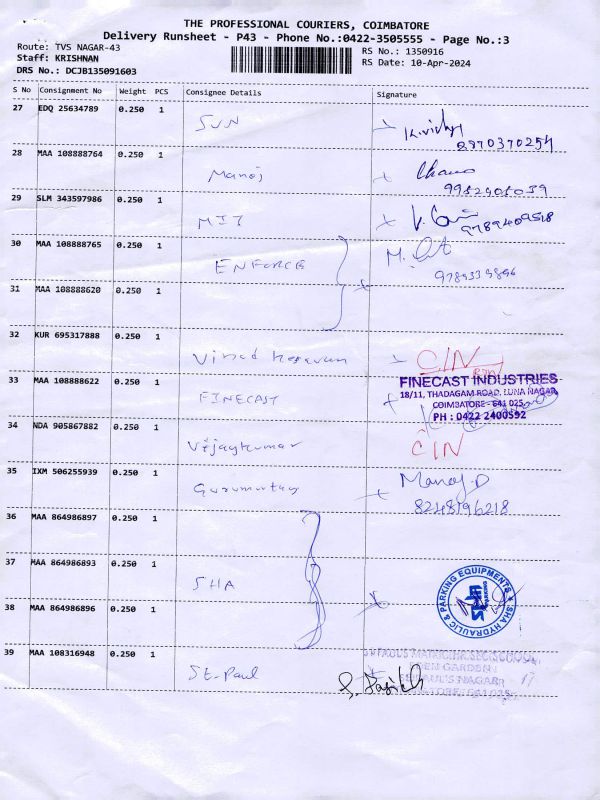 THE PROFESSIONAL COURIERS, COIMBATORE
Delivery Runsheet - P43 - Phone No.:0422-3505555 - Page No.:3
Route: TVS NAGAR-43
RS No.: 1350916
Staff: KRISHNAN
RS Date: 10-Apr-2024
DRS No.: DCJB135091603
S No Consignment No Weight PCS Consignee Details Signature
27 EDQ 25634789 0.250 1 SUN
28 MAA 108888764 0.250 1 Manoj
29 SLM 343597986 0.250 1 MIT
9789409518
30 MAA 108888765 0.250 1 ENFORCE
9789339896
31 MAA 108888620 0.250 1
32 KUR 695317888 0.250 1 CIN
33 MAA 108888622 0.250 1 FINECAST
FINECAST INDUSTRIES
18/11, THADAGAM ROAD, LUNA NAGAR,
COIMBATORE - 641 025.
PH : 0422 2400592
34 NDA 905867882 0.250 1 Vijaykumar CIN
35 IXM 506255939 0.250 1 Gurumurthy Manoj.D
8248196218
36 MAA 864986897 0.250 1
37 MAA 864986893 0.250 1 SHA
SHA HYDRAULIC & PARKING EQUIPMENTS
38 MAA 864986896 0.250 1
39 MAA 108316948 0.250 1 St. Paul